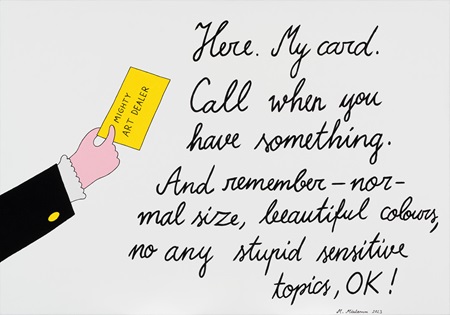 Here. My card.
MIGHTY
ART DEALER
Call when you
have something.
And remember – nor-
mal size, beautiful colours,
no any stupid sensitive
topics, OK!